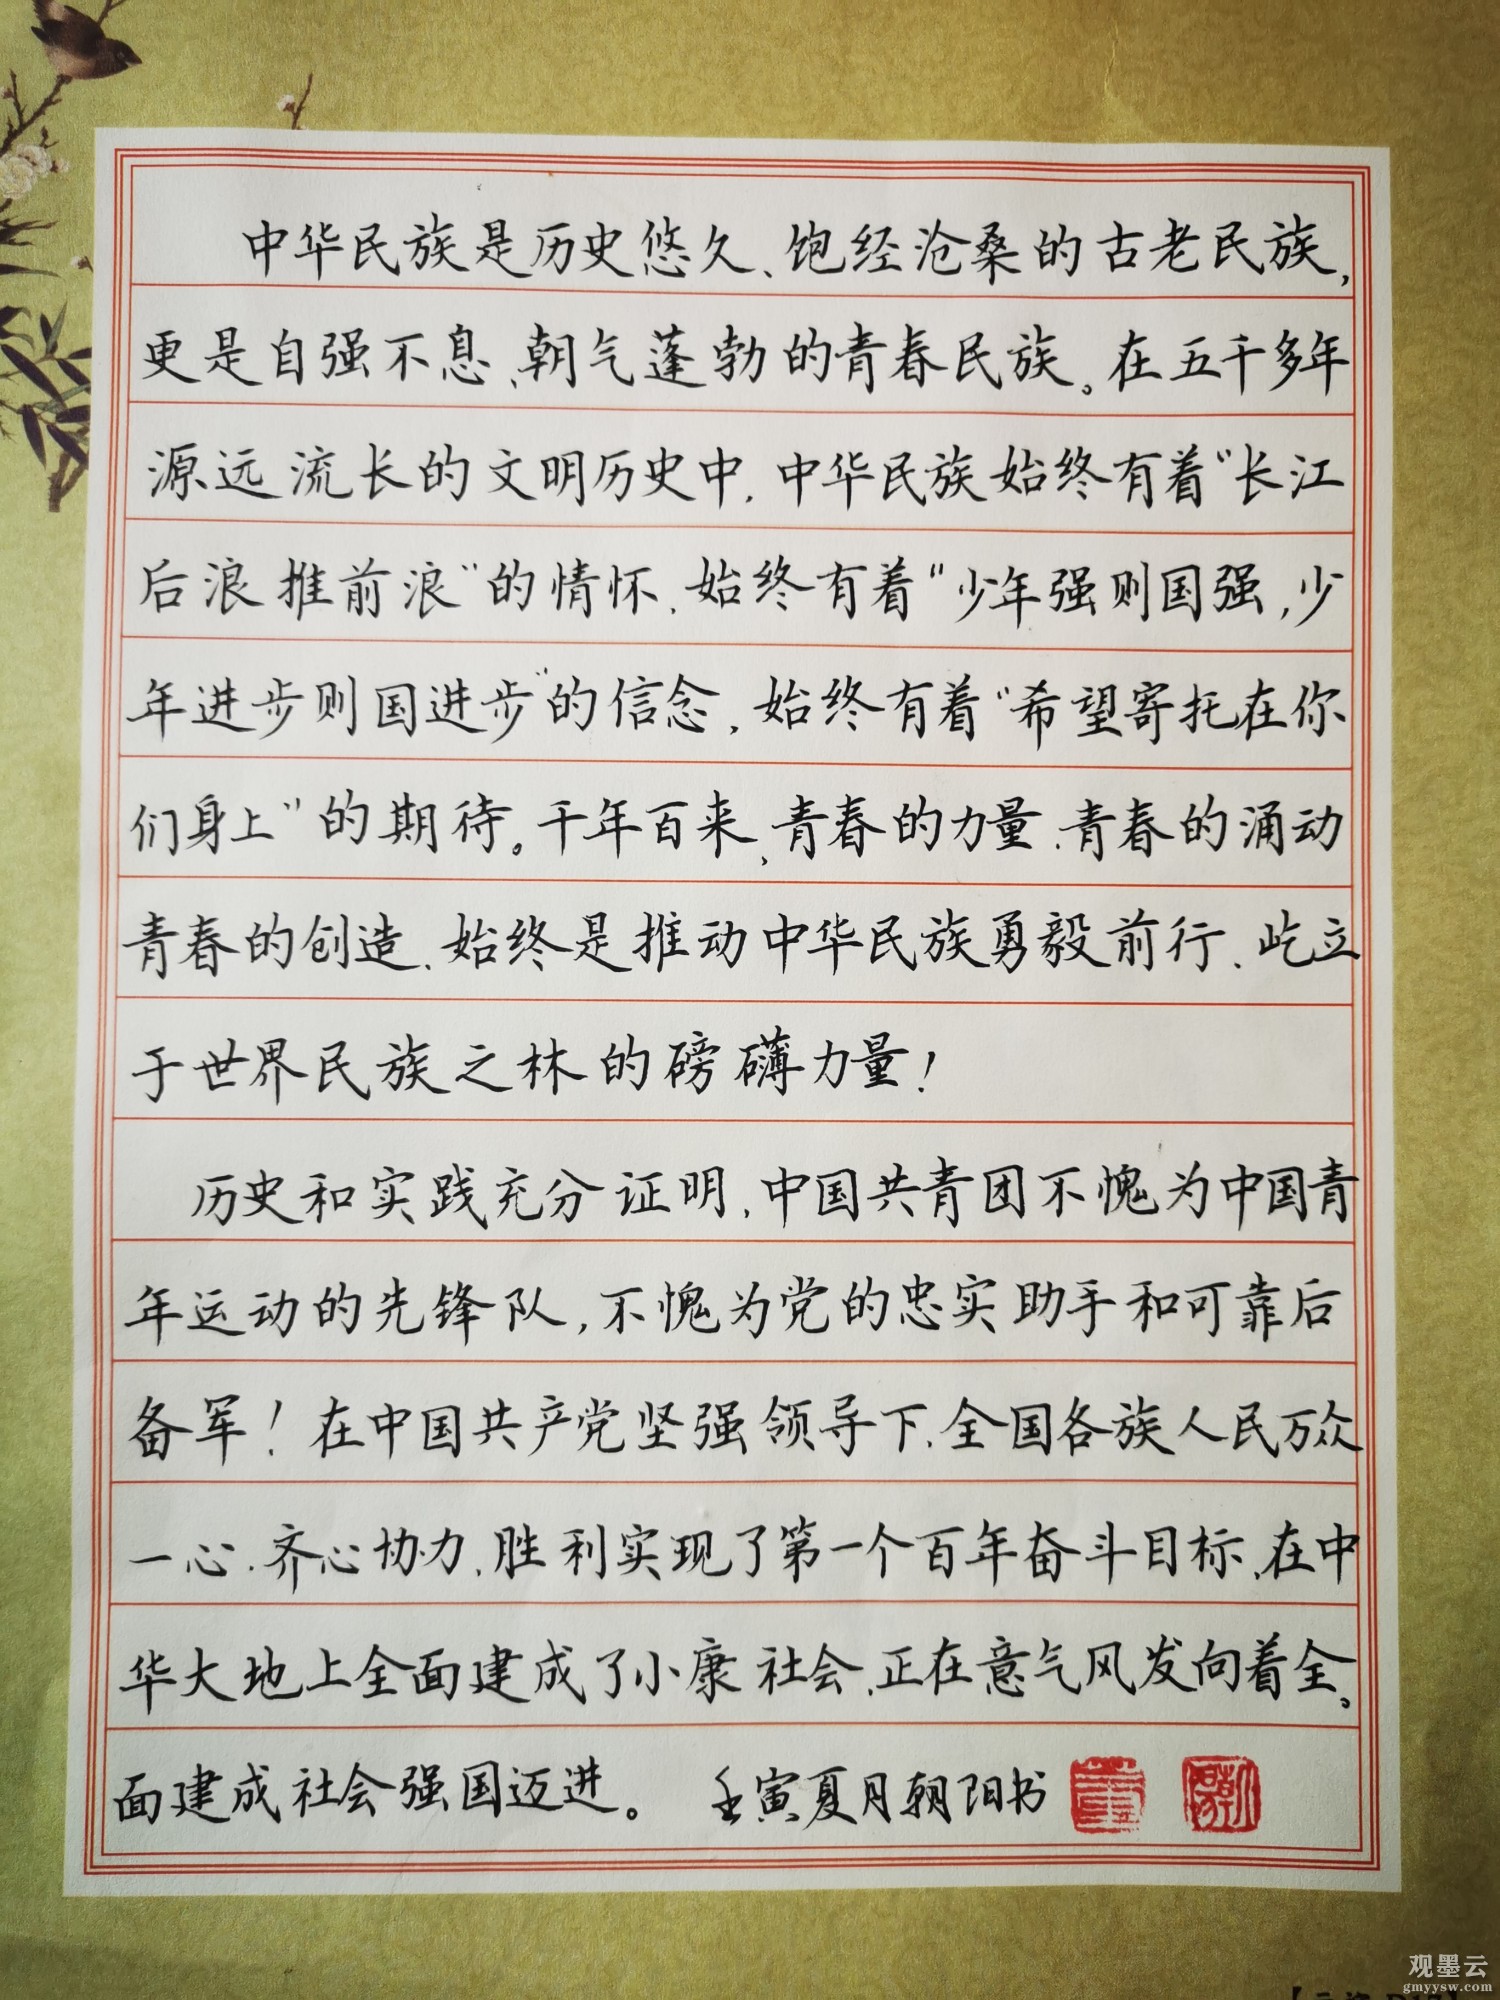 中华民族是历史悠久、饱经沧桑的古老民族,
更是自强不息、朝气蓬勃的青春民族。在五千多年
源远流长的文明历史中,中华民族始终有着“长江
后浪推前浪”的情怀,始终有着“少年强则国强,少
年进步则国进步”的信念,始终有着“希望寄托在你
们身上”的期待。千年百来,青春的力量,青春的涌动
青春的创造,始终是推动中华民族勇毅前行、屹立
于世界民族之林的磅礴力量!
历史和实践充分证明,中国共青团不愧为中国青
年运动的先锋队,不愧为党的忠实助手和可靠后
备军!在中国共产党坚强领导下,全国各族人民万众
一心、齐心协力,胜利实现了第一个百年奋斗目标,在中
华大地上全面建成了小康社会,正在意气风发向着全。
面建成社会强国迈进。 壬寅夏月朝阳书
观墨云
gmyysw.com